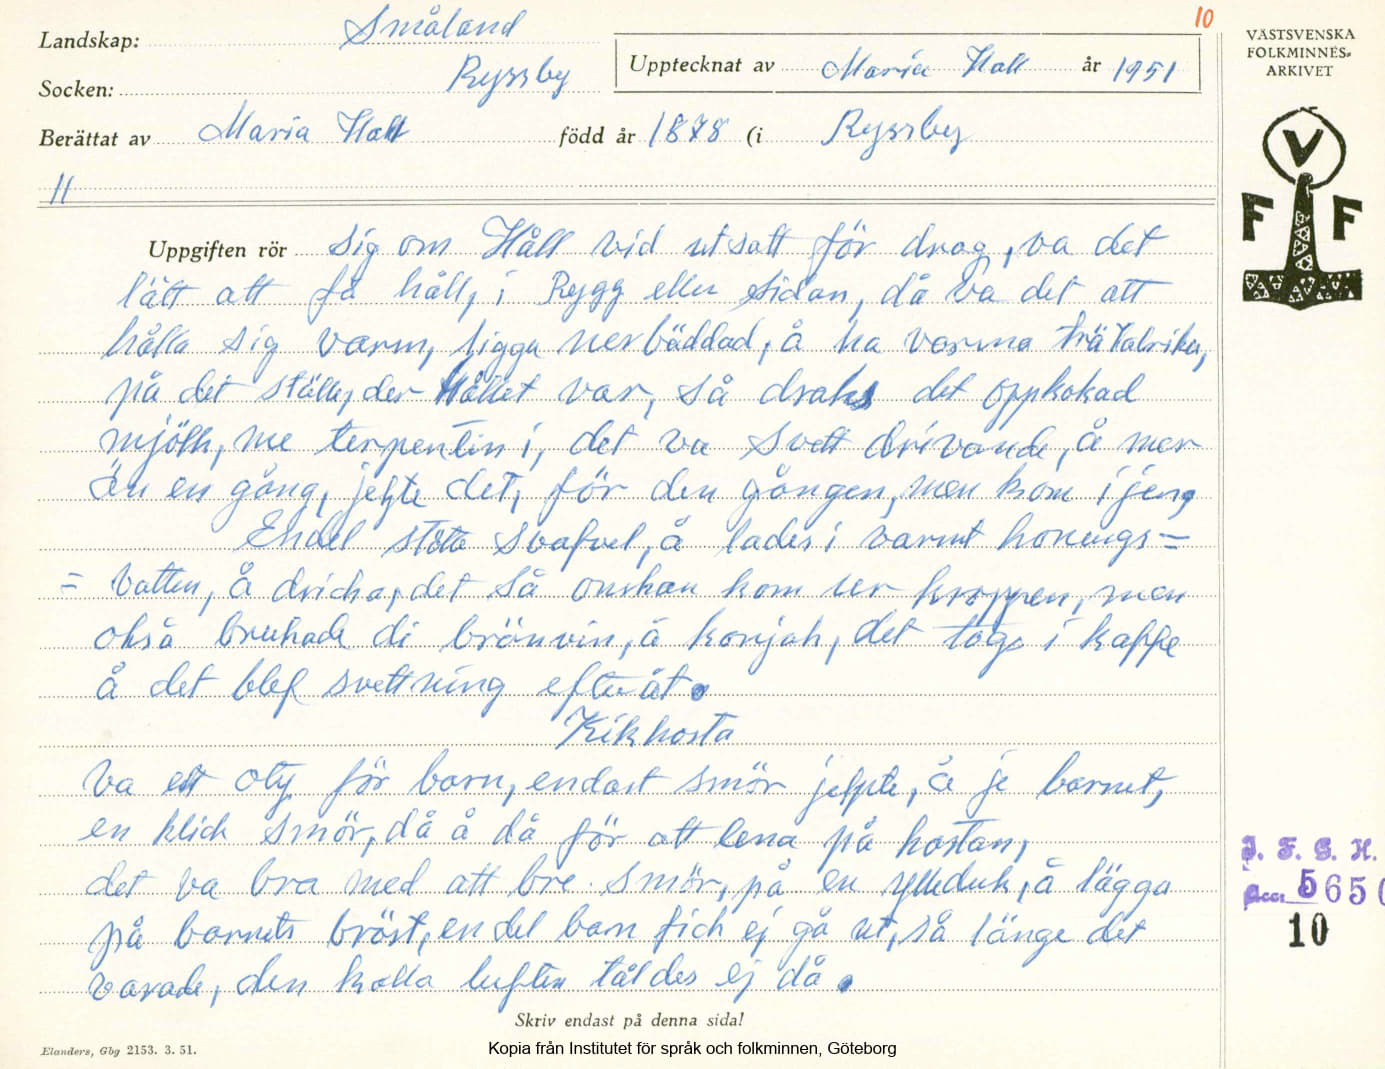 10
Landskap: Småland
Socken: Ryssby
Upptecknat av Maria Hall år 1951
Berättat av Maria Hall född år 1878 (i Ryssby
11
VÄSTSVENSKA
FOLKMINNES-
ARKIVET
V
F F
Uppgiften rör sig om Håll vid utsatt för drag, va det
lätt att få håll, i Rygg eller Sidan, då va det att
hålla sig varm, ligga nerbäddad, å ha varma
på det ställe, der Hållet var, så draks det oppkokad
mjölk, me terpentin i, det va Svett drivande, å mer
än en gång, jelpte det, för den gången, men kom ijeng
Endel stötte Svafvel, å lades i varmt honungs=
= Vatten, å dricka, det så onskan kom ur kroppen, men
också brukade di brönvin, å konjak, det togs i kaffe
å det blef svettning efteråt.
Kikhosta
Va ett oty för barn, endast smör jelpte, å je barnet,
en klick smör, då å då för att lena på hostan,
det va bra med att bre smör, på en ylleduk, å lägga
på barnets bröst, en del barn fick ej gå ut, så länge det
varade, den kalla luften tåldes ej då.
Skriv endast på denna sida!
Elanders, Gbg 2153. 3. 51.
Kopia från Institutet för språk och folkminnen, Göteborg
I. F. G. H.
Acc. 5650
10